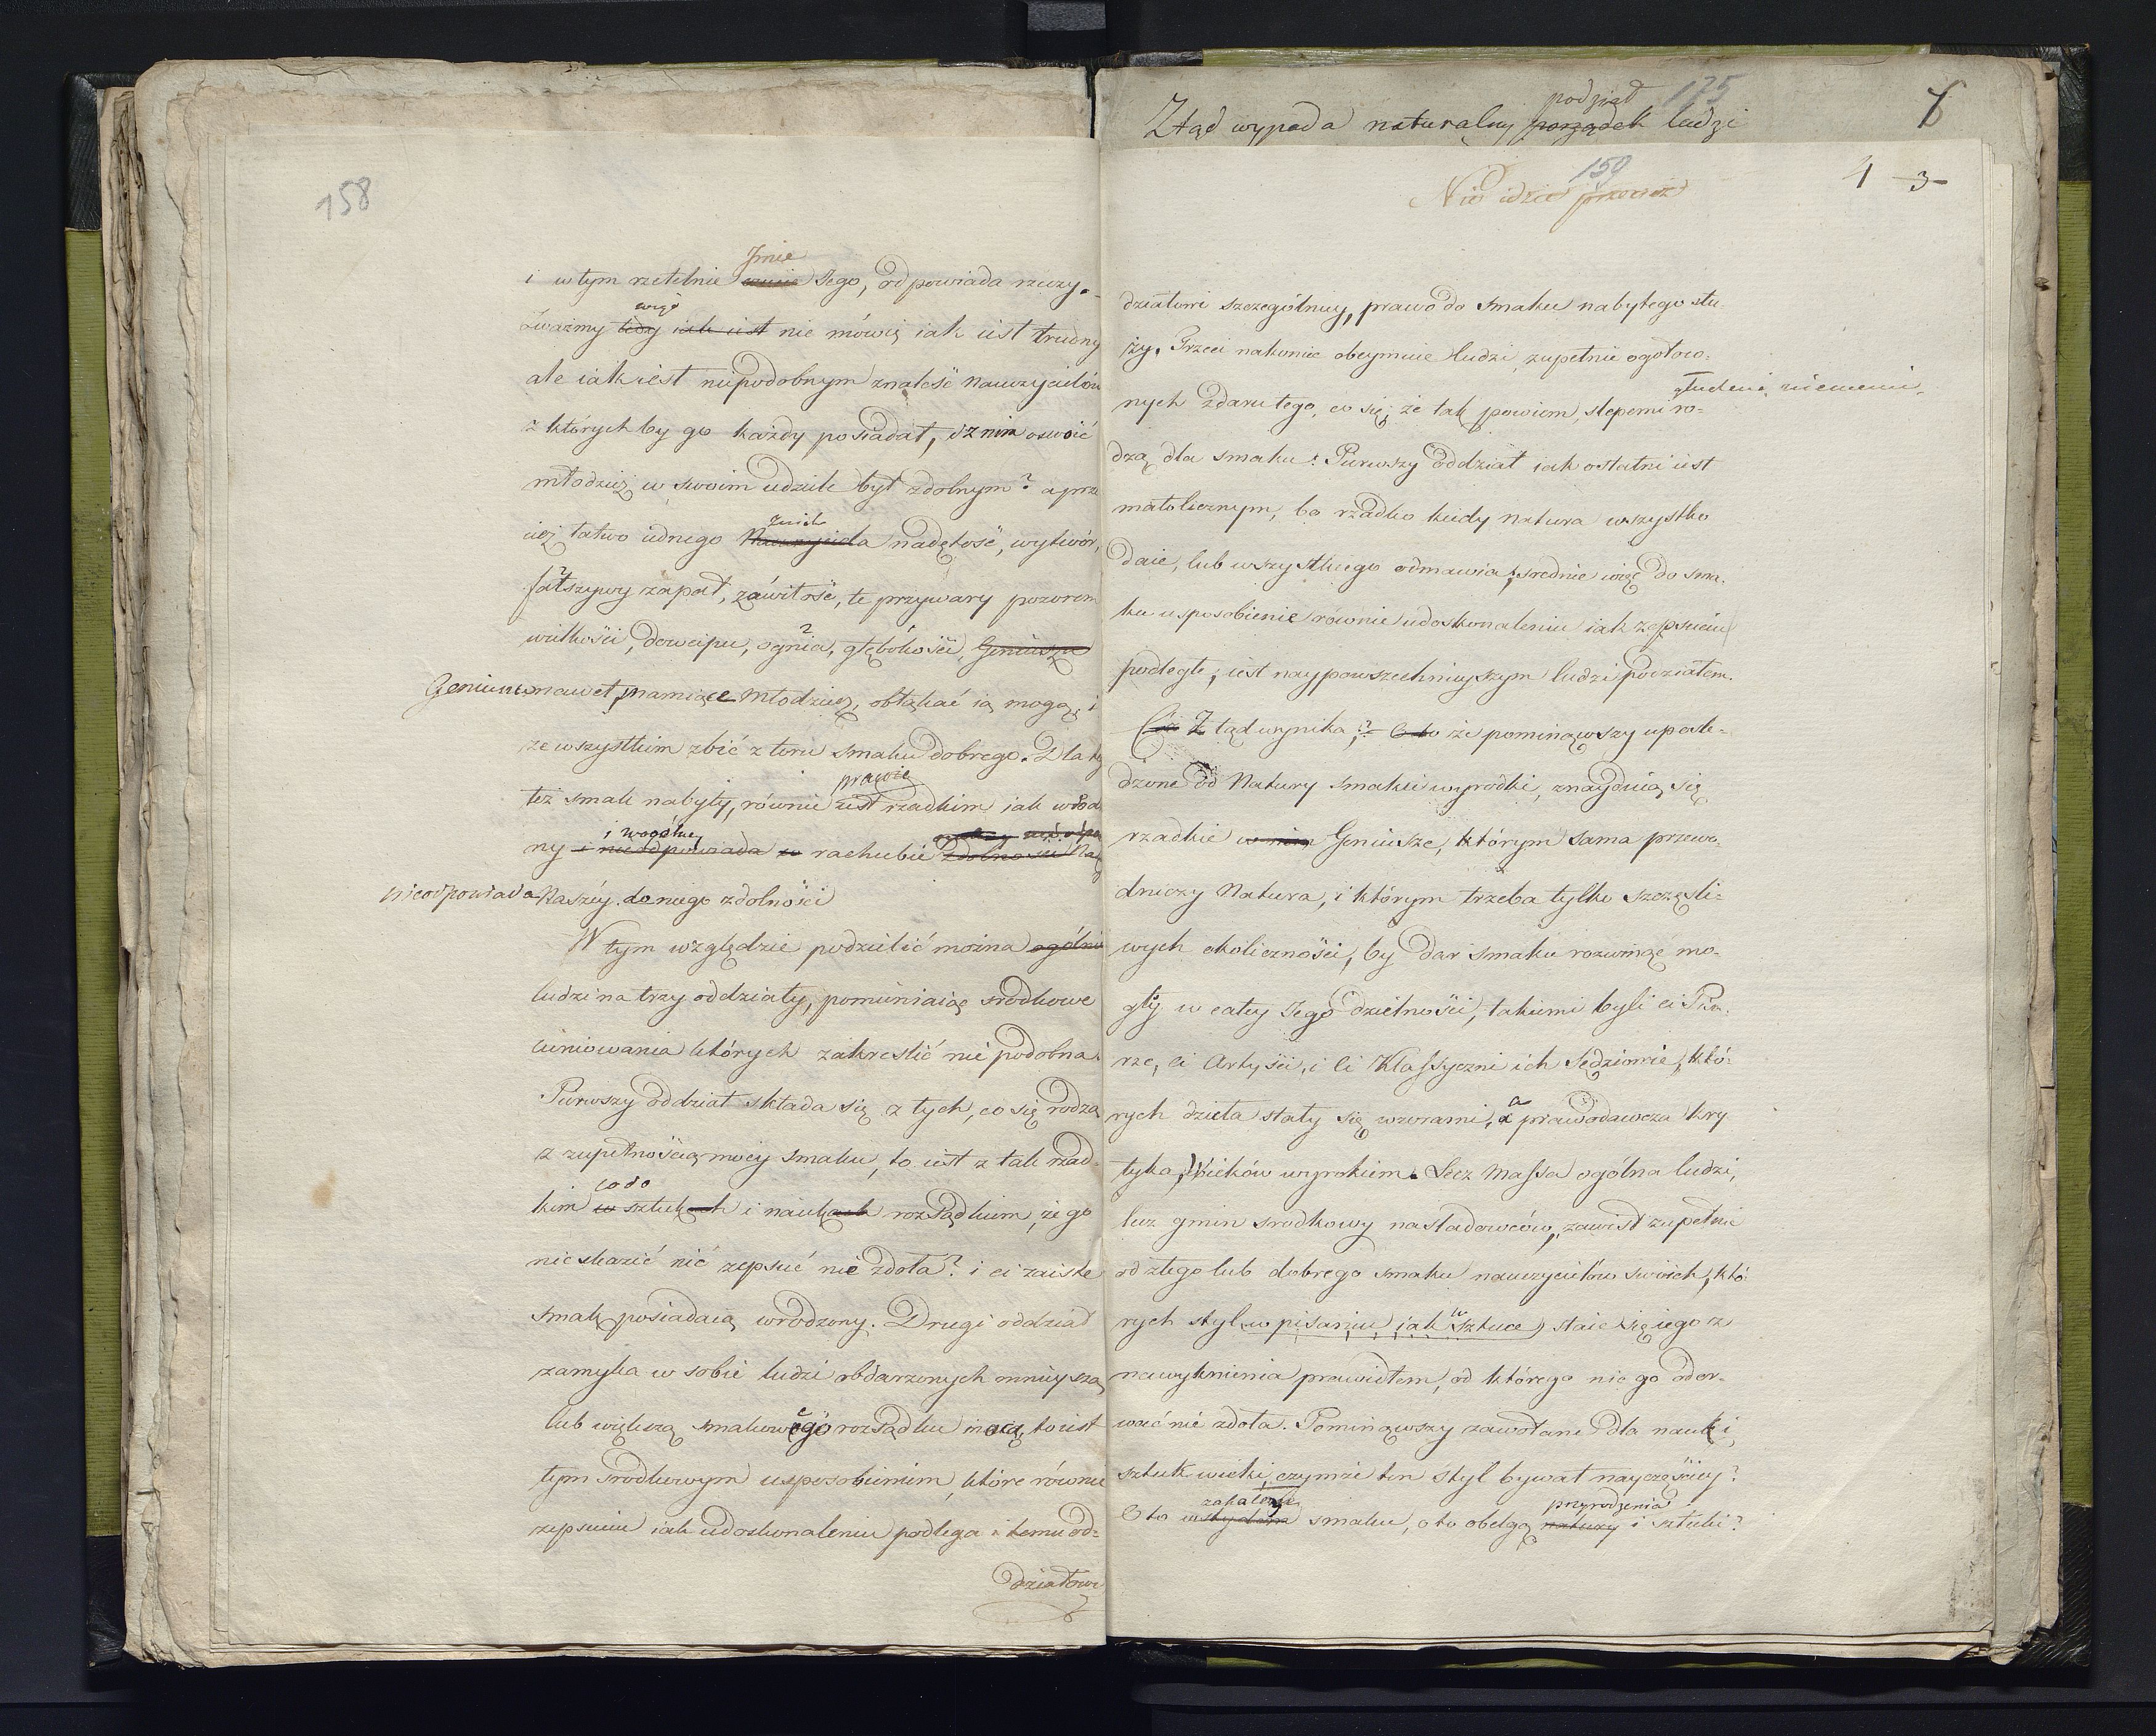 158
Jmie
i w tym rzetelnie Jego, odpowiada rzeczy.
więc
Zważmy tedy iak iest nie mówię iak iest trudny
ale iak iest niepodobnym znaleść Nauczycielów
z których by go każdy posiadał, i z nim oswoić
młodzież w swoim udziele był zdolnym? a prze
znich
cięż łatwo iednego Nauczyciela nadętość, wytwór,
fałszywy zapał, zawiłość, te przywary pozorem
wielkości, dowcipu, ognia, głębokości, Geniuszu
Geniuszu nawet, mamiące młodzież, obłąkać ią mogą, i
ze wszystkim zbić z toru smaku dobrego. Dla te
prawie
też smak nabyty, równie iest rzadkim iak wrod
i wogólney
ny i nieodpowiada w rachubie zdolności Na
nieodpowiada Naszéy. do niego zdolności
W tym względzie podzielić można ogólnie
ludzi na trzy oddziały, pomiiaiąc srodkowe
cieniowania których zakreslić nie podobna.
Pierwszy oddział składa się z tych, co się rodzą
z zupełnością mocy smaku, to iest z tak rzad-
co do
kim w sztukach i naukach rozsądkiem, że go
nic skazić nic zepsuć nie zdoła? i ci zaiste
smak posiadaią wrodzony. Drugi oddział
zamyka w sobie ludzi obdarzonych mnieyszą
lub większą smakowego rozsądku mocą, to iest
tym srodkowym usposobieniem, które równie
zepsuciu iak udoskonaleniu podlega i temu od-
działowi
podział 175
Ztąd wypada naturalny porządek ludzi
6
159
4 3
Nie idzie przecież
działowi szczególniey, prawo do smaku nabytego słu-
ży. Trzeci nakoniec obeymuie ludzi, zupełnie ogołoco-
głuchemi niememi
nych z daru tego, co się, że tak powiem, slepemi ro-
dzą dla smaku. Pierwszy oddział iak ostatni iest
małolicznym, bo rzadko kiedy Natura wszystko
daie, lub wszystkiego odmawia; srednie więc do sma-
ku usposobienie równie udoskonaleniu iak zepsuciu
podległe, iest naypowszechnieyszym ludzi podziałem.
Cóż Z tąd wynika,? Oto że pominąwszy upośle-
dzone od Natury smaku wyrodki, znayduią się
rzadkie w nim Geniusze, którym sama przewo-
dniczy Natura, i którym trzeba tylko szczęśli-
wych okoliczności, by dar smaku rozwinąć mo-
gły w całey Jego dzielności, takiemi byli ci Pisa-
rze, ci Artyści, i ci Klassyczni ich Sędziowie, któ-
rych dzieła stały się wzorami, a prawodawcza kry-
tyka, Wieków wyrokiem. Lecz Massa ogólna ludzi,
lecz gmin srodkowy nasladowców, zawisł zupełnie
od złego lub dobrego smaku nauczycielów swoich, któ-
rych styl w pisaniu, iak w sztuce, staie się iego z
nawyknienia prawidłem, od którego nic go oder-
wać nie zdoła. Pominąwszy zawołane dla nauk i
sztuk wieki, czymże ten styl bywał nayczęściey?
przyrodzenia
Oto smaku, oto obelgą natury i sztuki?